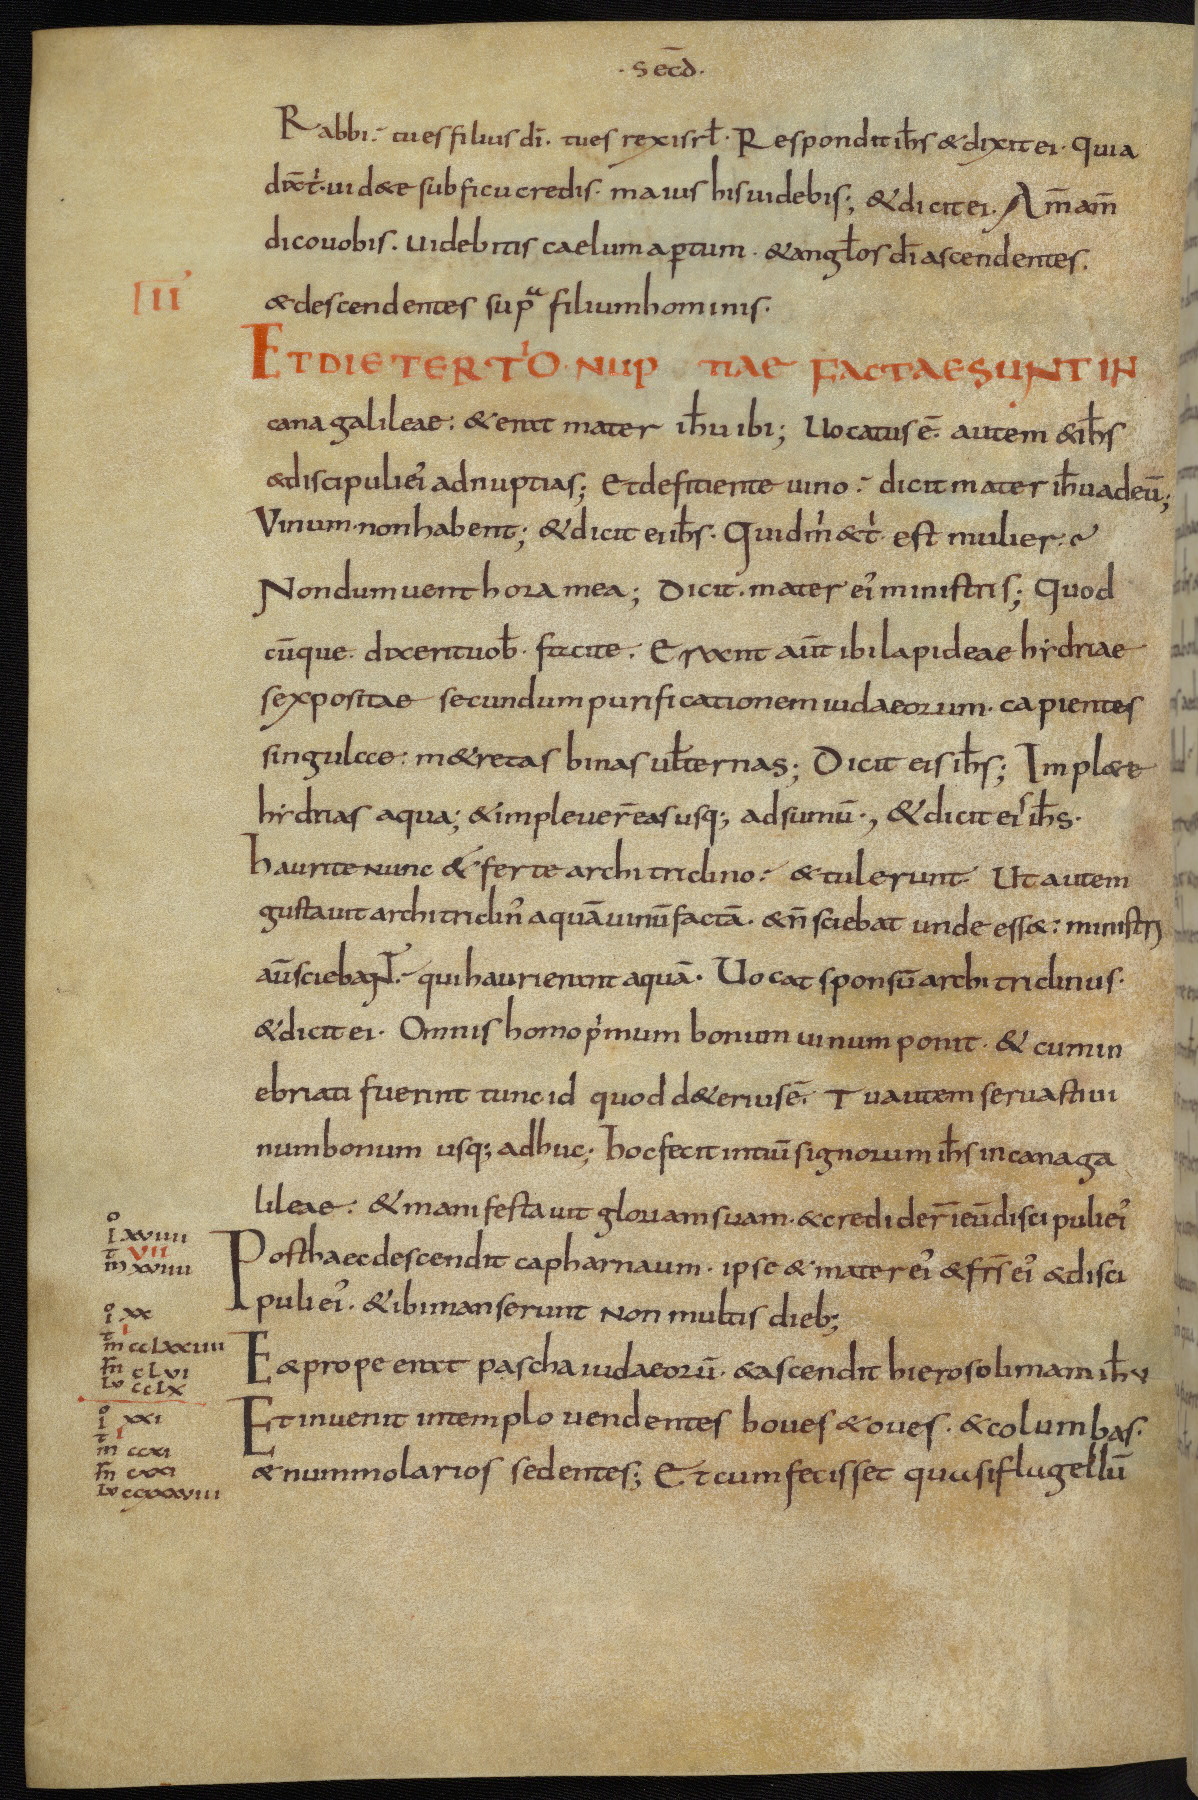 · Secd̄ ·
Rabbi. tu es filius dī. tu es rex isrł. Respondit ih̄s & dixit ei. Quia
dix̄ t́. uid&e sub ficu credis. maius his uidebis; & dicit ei. Am̄ am̄
dico uobis. Uidebitis caelum aꝑtum. & angłos dī ascendentes.
& descendentes supᷓ filium hominis.
III
ET DIE TERTIO NUPTIAE FACTAE SUNT IN
cana galileae: & erat mater ih̄u ibi; Uocatus ē autem & ih̄s
& discipuli ei᾽ ad nuptias; Et deficiente uino dicit mater ih̄u ad eū;
Vinum non habent; & dicit ei ih̄s. Quid m̍ & t̍ est mulier?
Nondum uenit hora mea; Dicit mater ei᾽ ministris; Quod
cūque dixerit uob̄ facite. Erant aūt ibi lapideae hẏdriae
sex positae secundum purificationem iudaeorum. capientes
singulae: m&retas binas uł ternas; Dicit eis ih̄s; Impl&e
hẏdrias aqua; & impleuer̄ eas usq; ad sumū., & dicit eis ih̄s.
haurite nunc & ferte architriclino: & tulerunt. Ut autem
gustauit architriclin᾽ aquā uinū factā. & n̄ sciebat unde ess&: ministri
aū sciebant. qui haurierant aquā. Uocat sponsū architriclinus.
& dicit ei. Omnis homo p̍mum bonum uinum ponit. & cum in
ebriati fuerint tunc id quod d&erius ē. Tu autem seruasti ui
num bonum usq; adhuc; hoc fecit initiū signorum ih̄s in cana ga
lileae: & manifestauit gloriam suam. & credider̄ i eū discipuli ei᾽
i xviiii
t VII
m xxviiii
Post haec descendit capharnaum. ipse & mater ei᾽ & frs̄ ei᾽ & disci
puli ei᾽. & ibi manserunt non multis dieb;
i xx
t I
m cclxxiiii
m̄ clvi
lv cclx
E& prope erat pascha iudaeorū. & ascendit hierosolimam ih̄s
i xxi
t I
m ccxi
m̄ cxxi
lv ccxxxviii
Et inuenit in templo uendentes boues & oues. & columbas.
& nummolarios sedentes; Et cum fecisset quasi flagellū